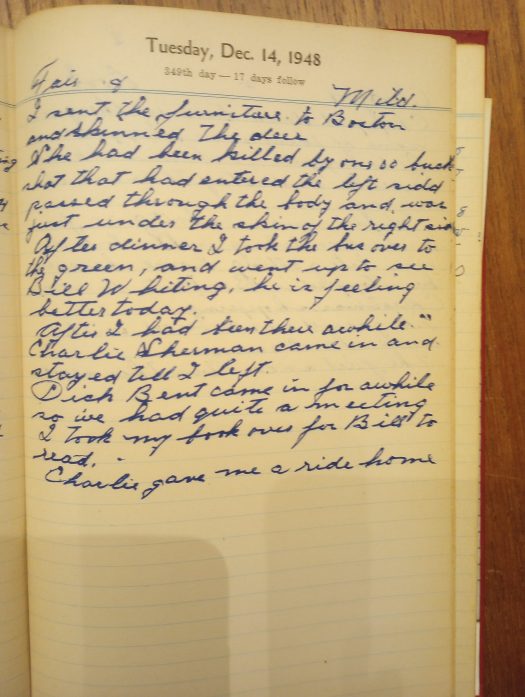 Tuesday, Dec. 14, 1948
349th day — 17 days follow
Fair & Mild.
I sent the furniture to Boston
and skinned the deer
She had been killed by one oo buck
shot that had entered the left side
passed through the body and was
just under the skin of the right side
After dinner I took the bus over to
the green, and went up to see
Bill Whiting, he is feeling
better today.
After I had been there awhile
Charlie Sherman came in and
stayed till I left.
Dick Bent came in for awhile
so we had quite a meeting
I took my book over for Bill to
read.
Charlie gave me a ride home